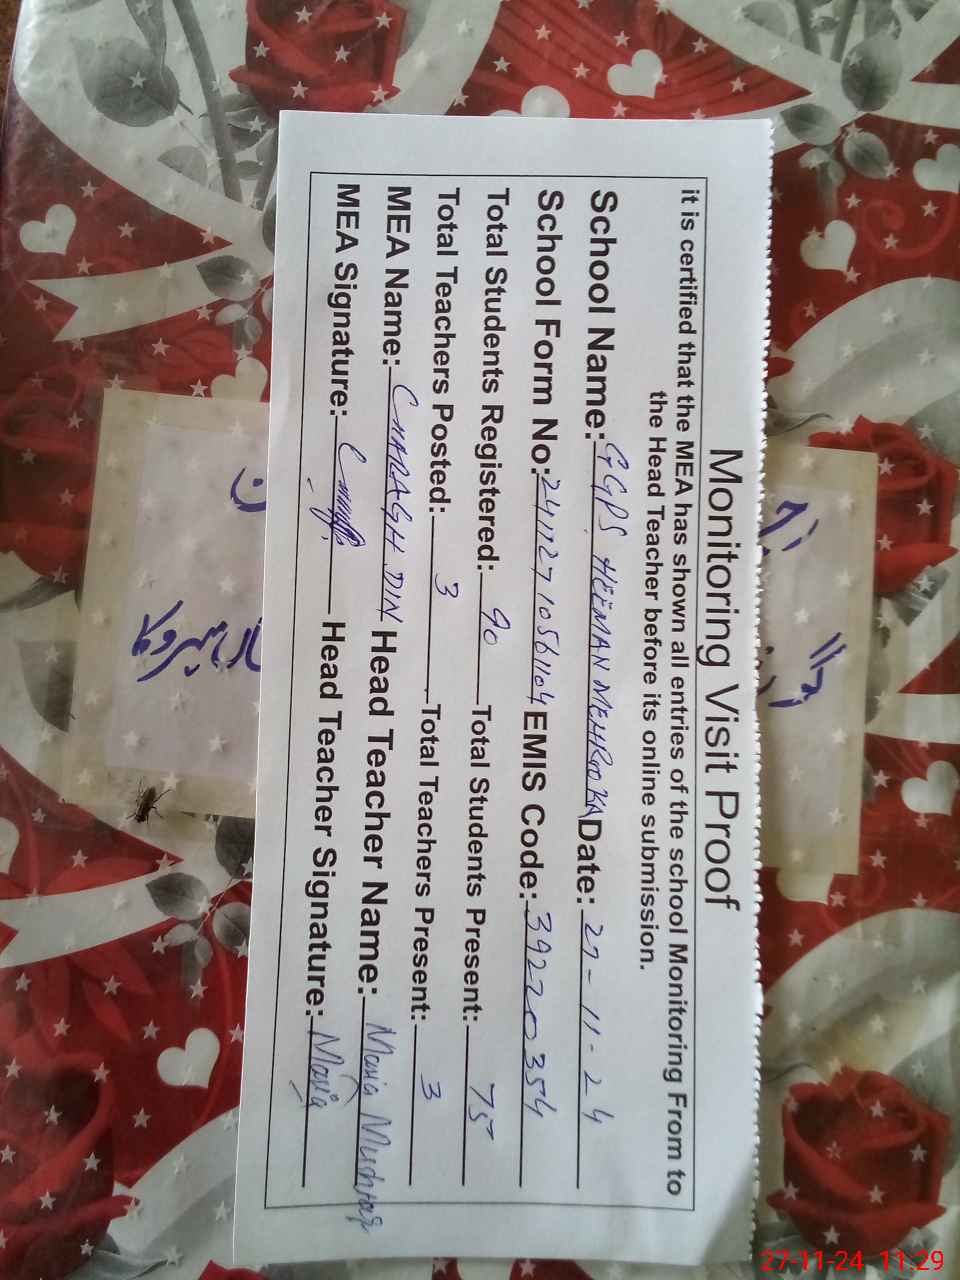 Monitoring Visit Proof
it is certified that the MEA has shown all entries of the school Monitoring From to
the Head Teacher before its online submission.
School Name: GGPS HEEMAN MEHROOKA Date: 27-11-24
School Form No: 24112710561104 EMIS Code: 39220354
Total Students Registered: 90 Total Students Present: 75
Total Teachers Posted: 3 Total Teachers Present: 3
MEA Name: CHARAGH DIN Head Teacher Name: Maria Mushtaq
MEA Signature: Head Teacher Signature: Maria
27-11-24 11:29